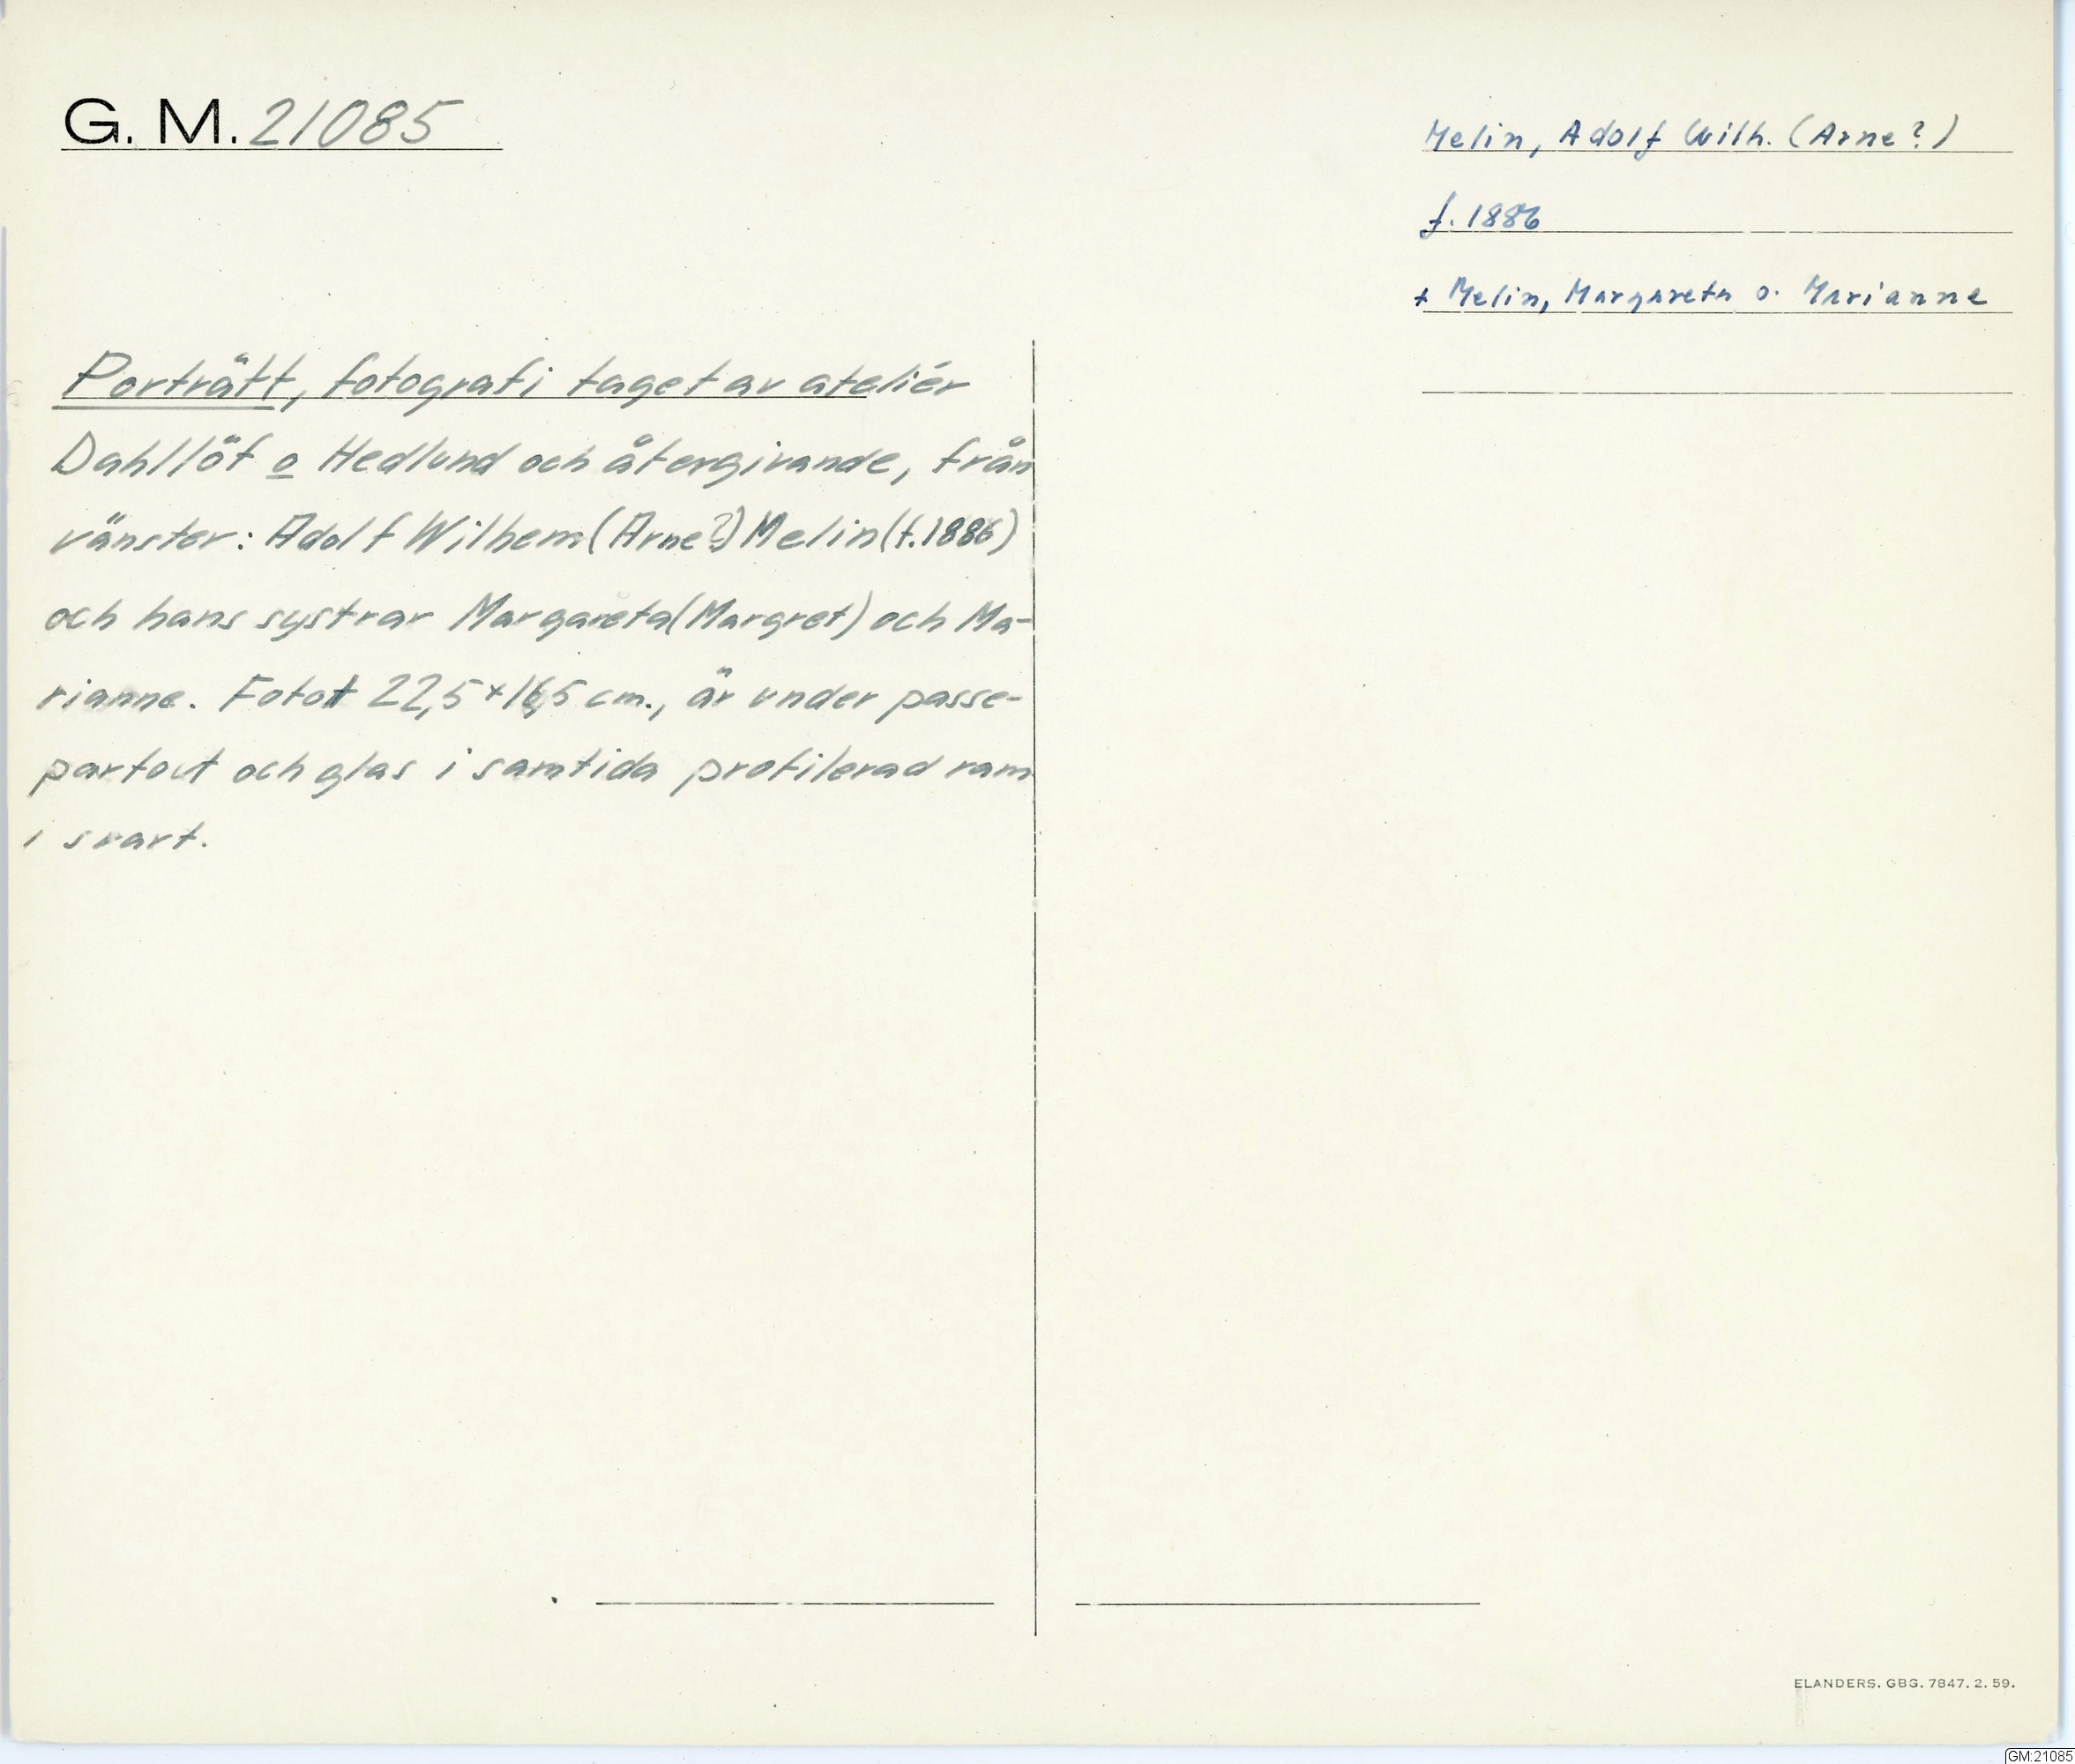 G. M. 21085
Melin, Adolf Wilh. (Arne?)
f. 1886
+ Melin, Margareta o. Marianne
Porträtt, fotografi taget av ateliér
Dahllöf o Hedlund och återgivande, från
vänster: Adolf Wilhem (Arne?) Melin (f. 1886)
och hans systrar Margareta (Margret) och Ma-
rianne. Fotot 22,5 x 16,5 cm., är under passe-
partout och glas i samtida profilerad ram
i svart.
ELANDERS. GBG. 7847. 2. 59.
GM:21085